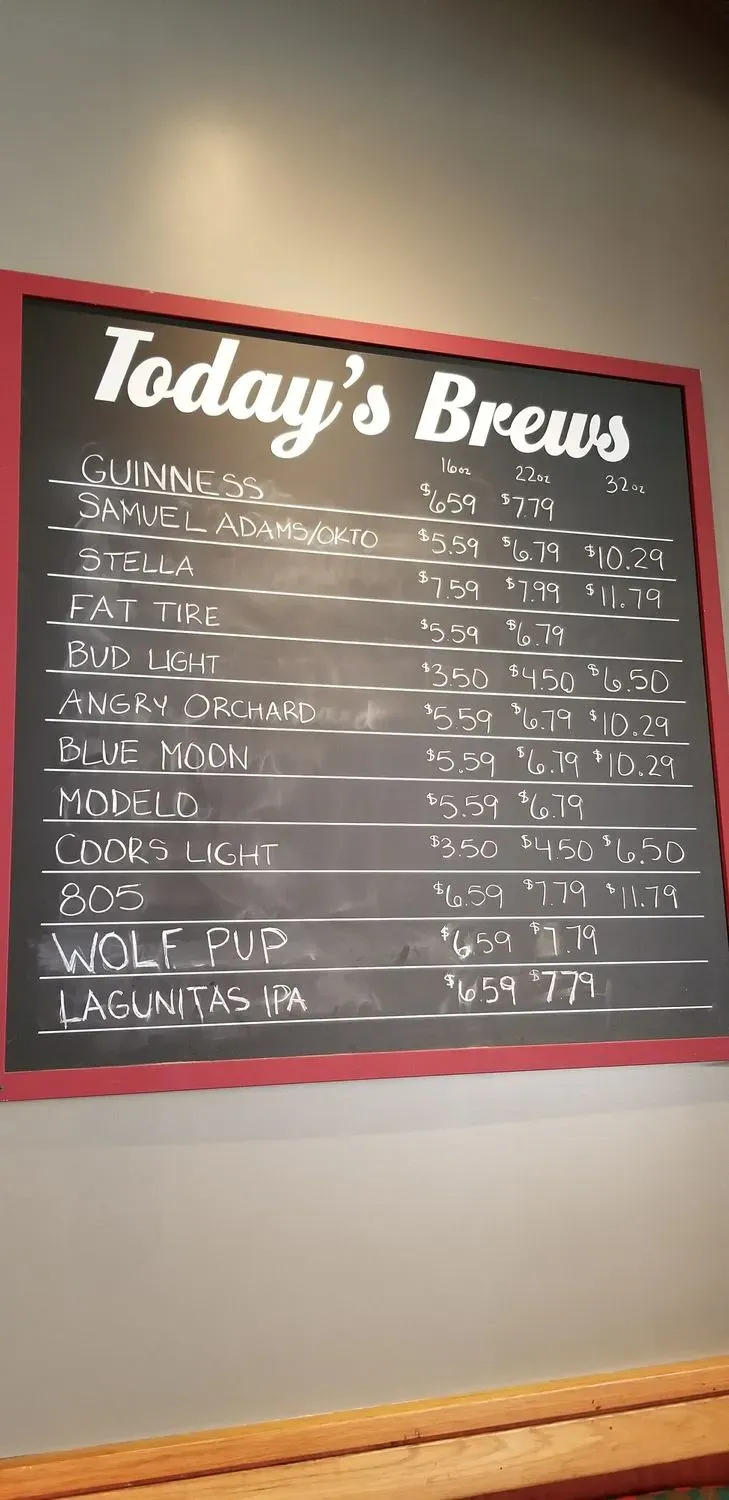 Today's Brews
16oz 22oz 32oz
GUINNESS $6.59 $7.79
SAMUEL ADAMS/OKTO $5.59 $6.79 $10.29
STELLA $7.59 $7.99 $11.79
FAT TIRE $5.59 $6.79
BUD LIGHT $3.50 $4.50 $6.50
ANGRY ORCHARD $5.59 $6.79 $10.29
BLUE MOON $5.59 $6.79 $10.29
MODELO $5.59 $6.79
COORS LIGHT $3.50 $4.50 $6.50
805 $6.59 $7.79 $11.79
WOLF PUP $6.59 $7.79
LAGUNITAS IPA $6.59 $7.79